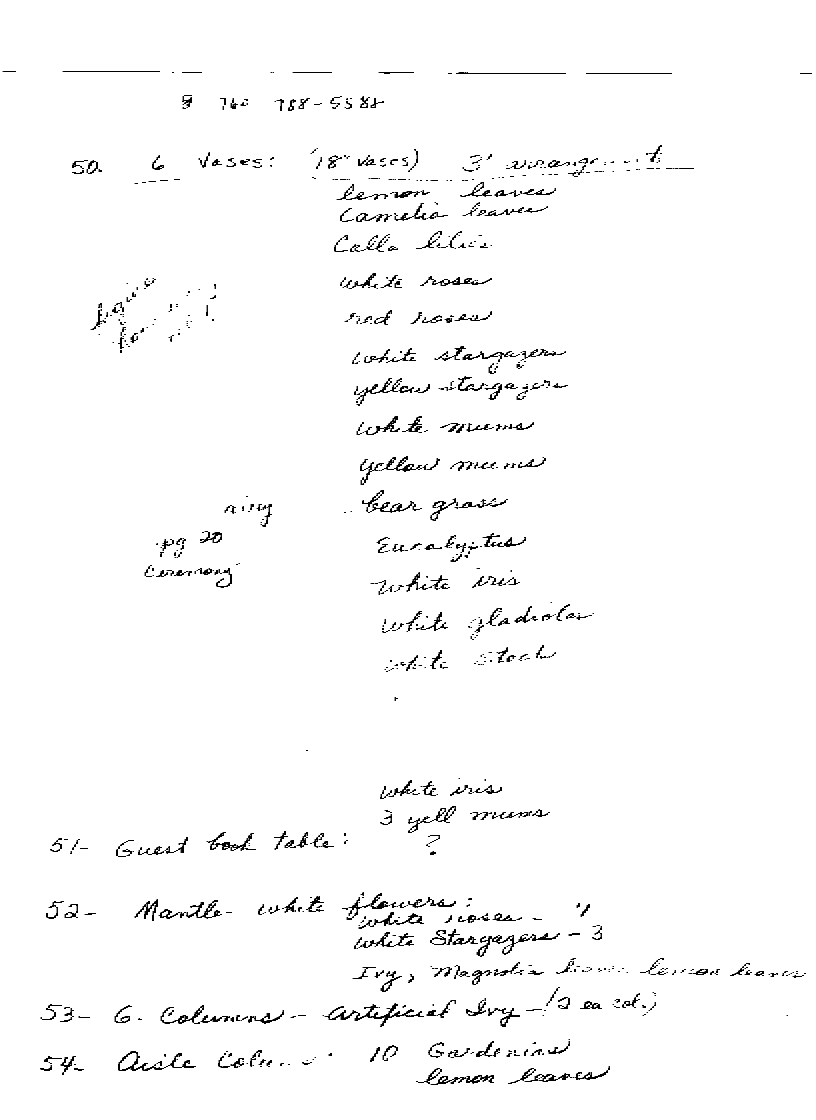 760 788-5588
50. 6 Vases: (18" vases) 3' arrangement
lemon leaves
Camelia leaves
Calla lilies
white roses
red roses
white stargazers
yellow stargazers
white mums
yellow mums
bear grass
airy
pg 20
Eucalyptus
Ceremony
White iris
white gladiolas
white stock
white iris
3 yell mums
51- Guest book table: ?
52- Mantle- white flowers:
white roses -
white Stargazers - 3
Ivy, Magnolia leaves lemon leaves
53- 6. Columns - Artificial Ivy - (2 ea col.)
54- Aisle 10 Gardenias
lemon leaves